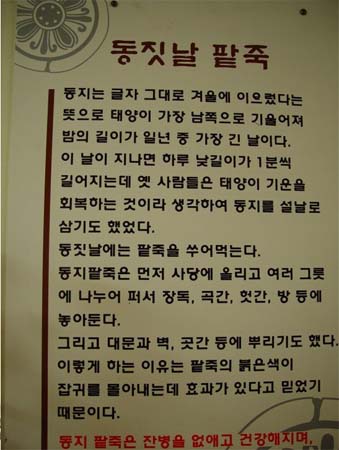 동짓날 팥죽
동지는 글자 그대로 겨울에 이으렀다는
뜻으로 태양이 가장 남쪽으로 기울어져
밤의 길이가 일년 중 가장 긴 날이다.
이 날이 지나면 하루 낮길이가 1분씩
길어지는데 옛 사람들은 태양이 기운을
회복하는 것이라 생각하여 동지를 설날로
삼기도 했었다.
동짓날에는 팥죽을 쑤어먹는다.
동지팥죽은 먼저 사당에 올리고 여러 그릇
에 나누어 퍼서 장독, 곡간, 헛간, 방 등에
놓아둔다.
그리고 대문과 벽, 곳간 등에 뿌리기도 했다.
이렇게 하는 이유는 팥죽의 붉은색이
잡귀를 몰아내는데 효과가 있다고 믿었기
때문이다.
동지 팥죽은 잔병을 없애고 건강해지며,